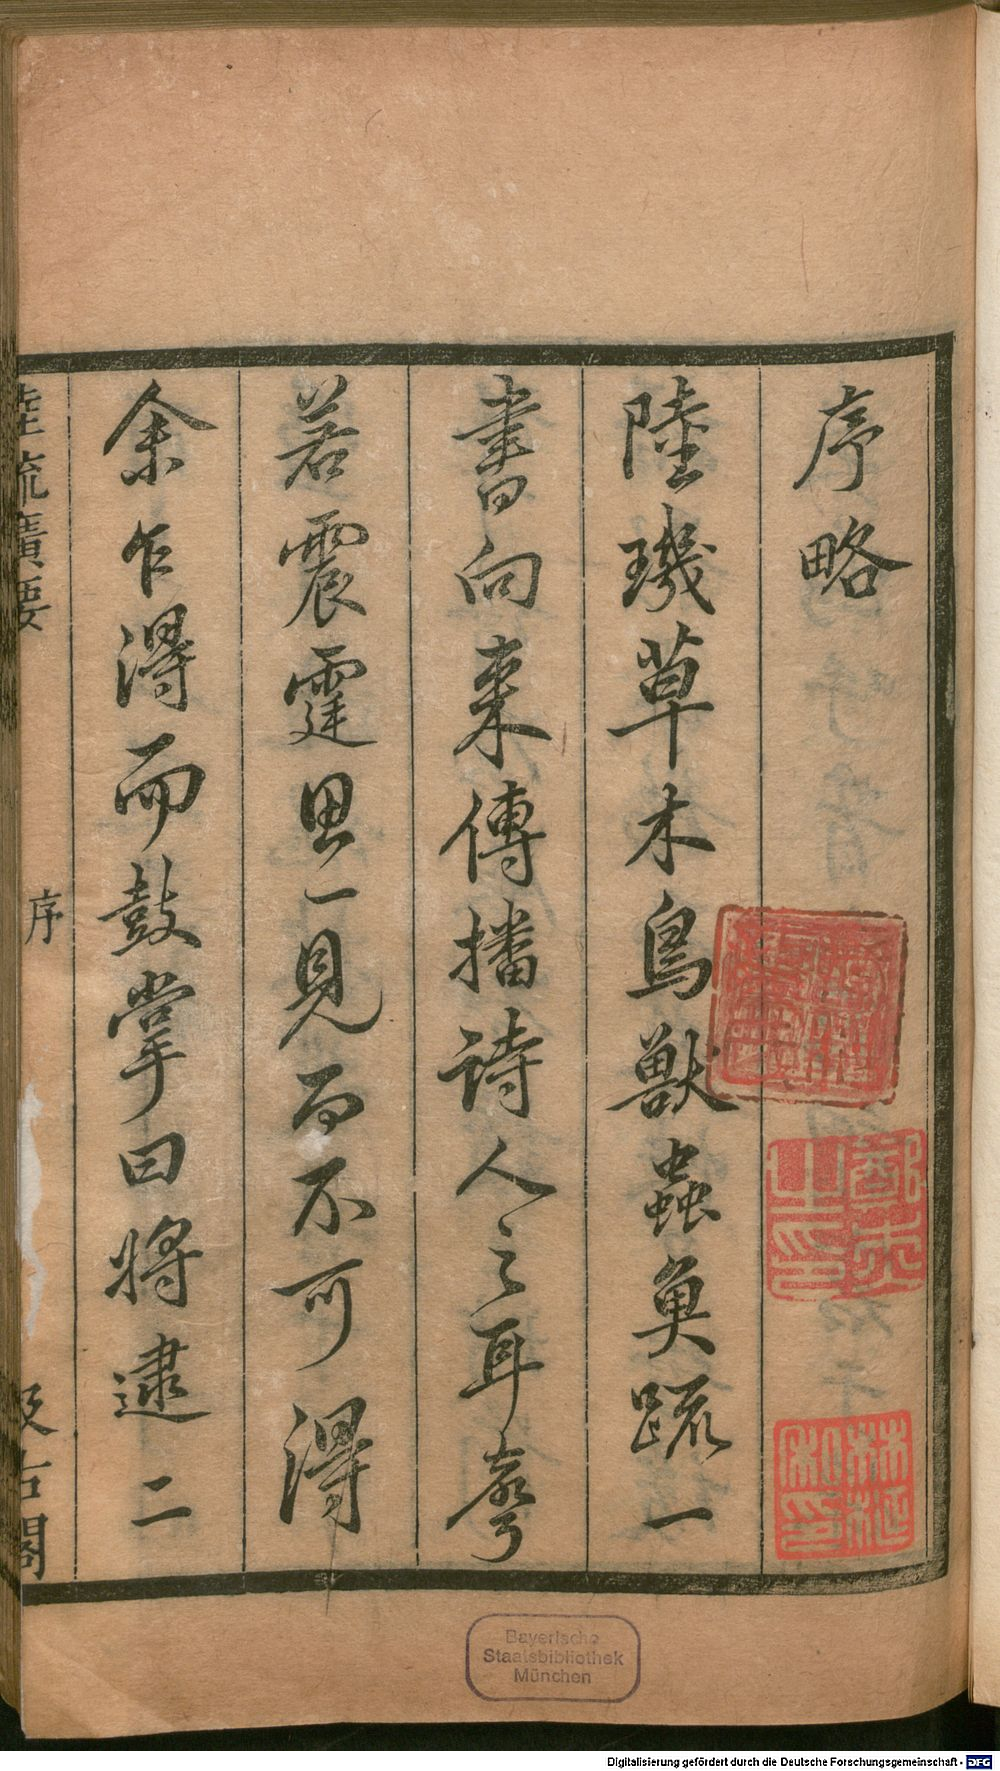 序略
陸璣草木鳥獸蟲魚疏一
書向來傳播詩人之耳
若震霆思一見而不可得
余乍得而鼓掌曰將逮二
陸疏廣要
序
汲古閣
Bayerische
Staatsbibliothek
München
Digitalisierung gefördert durch die Deutsche Forschungsgemeinschaft - DFG